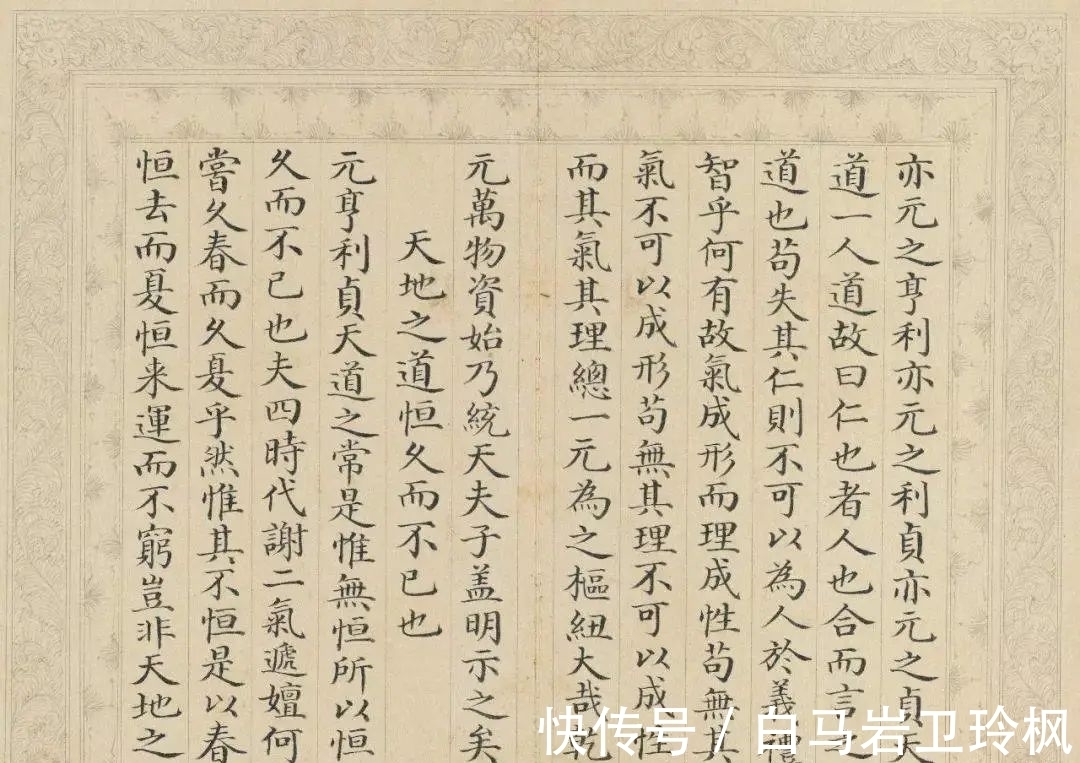 亦元之亨利亦元之利貞亦元之貞天
道一人道故曰仁也者人也合而言之
道也苟失其仁則不可以為人於義禮
智乎何有故氣成形而理成性苟無其
氣不可以成形苟無其理不可以成性
而其氣其理總一元為之樞紐大哉乾
元萬物資始乃統天夫子盖明示之矣
天地之道恒久而不已也
元亨利貞天道之常是惟無恒所以恒
久而不已也夫四時代謝二氣遞嬗何
嘗久春而久夏乎然惟其不恒是以春
恒去而夏恒来運而不窮豈非天地之
快传号 / 白马岩卫玲枫